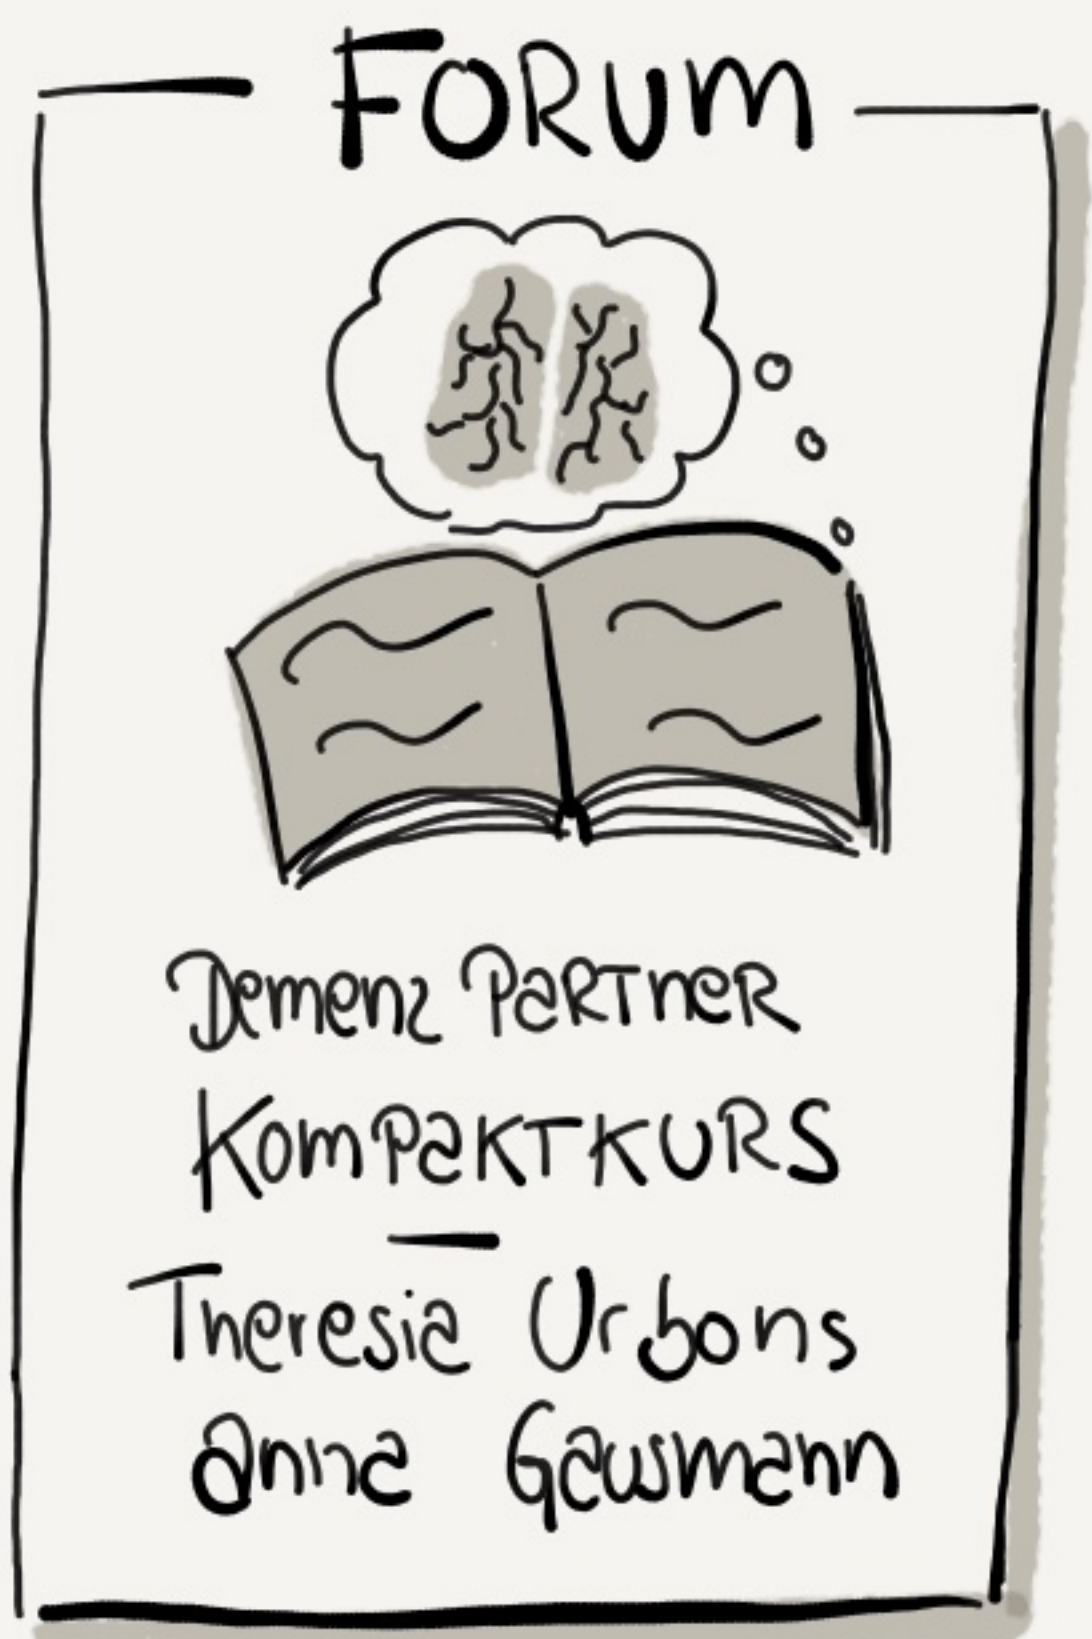 FORUM
Demenz Partner
Kompaktkurs
Theresia Urbons
Anna Gausmann